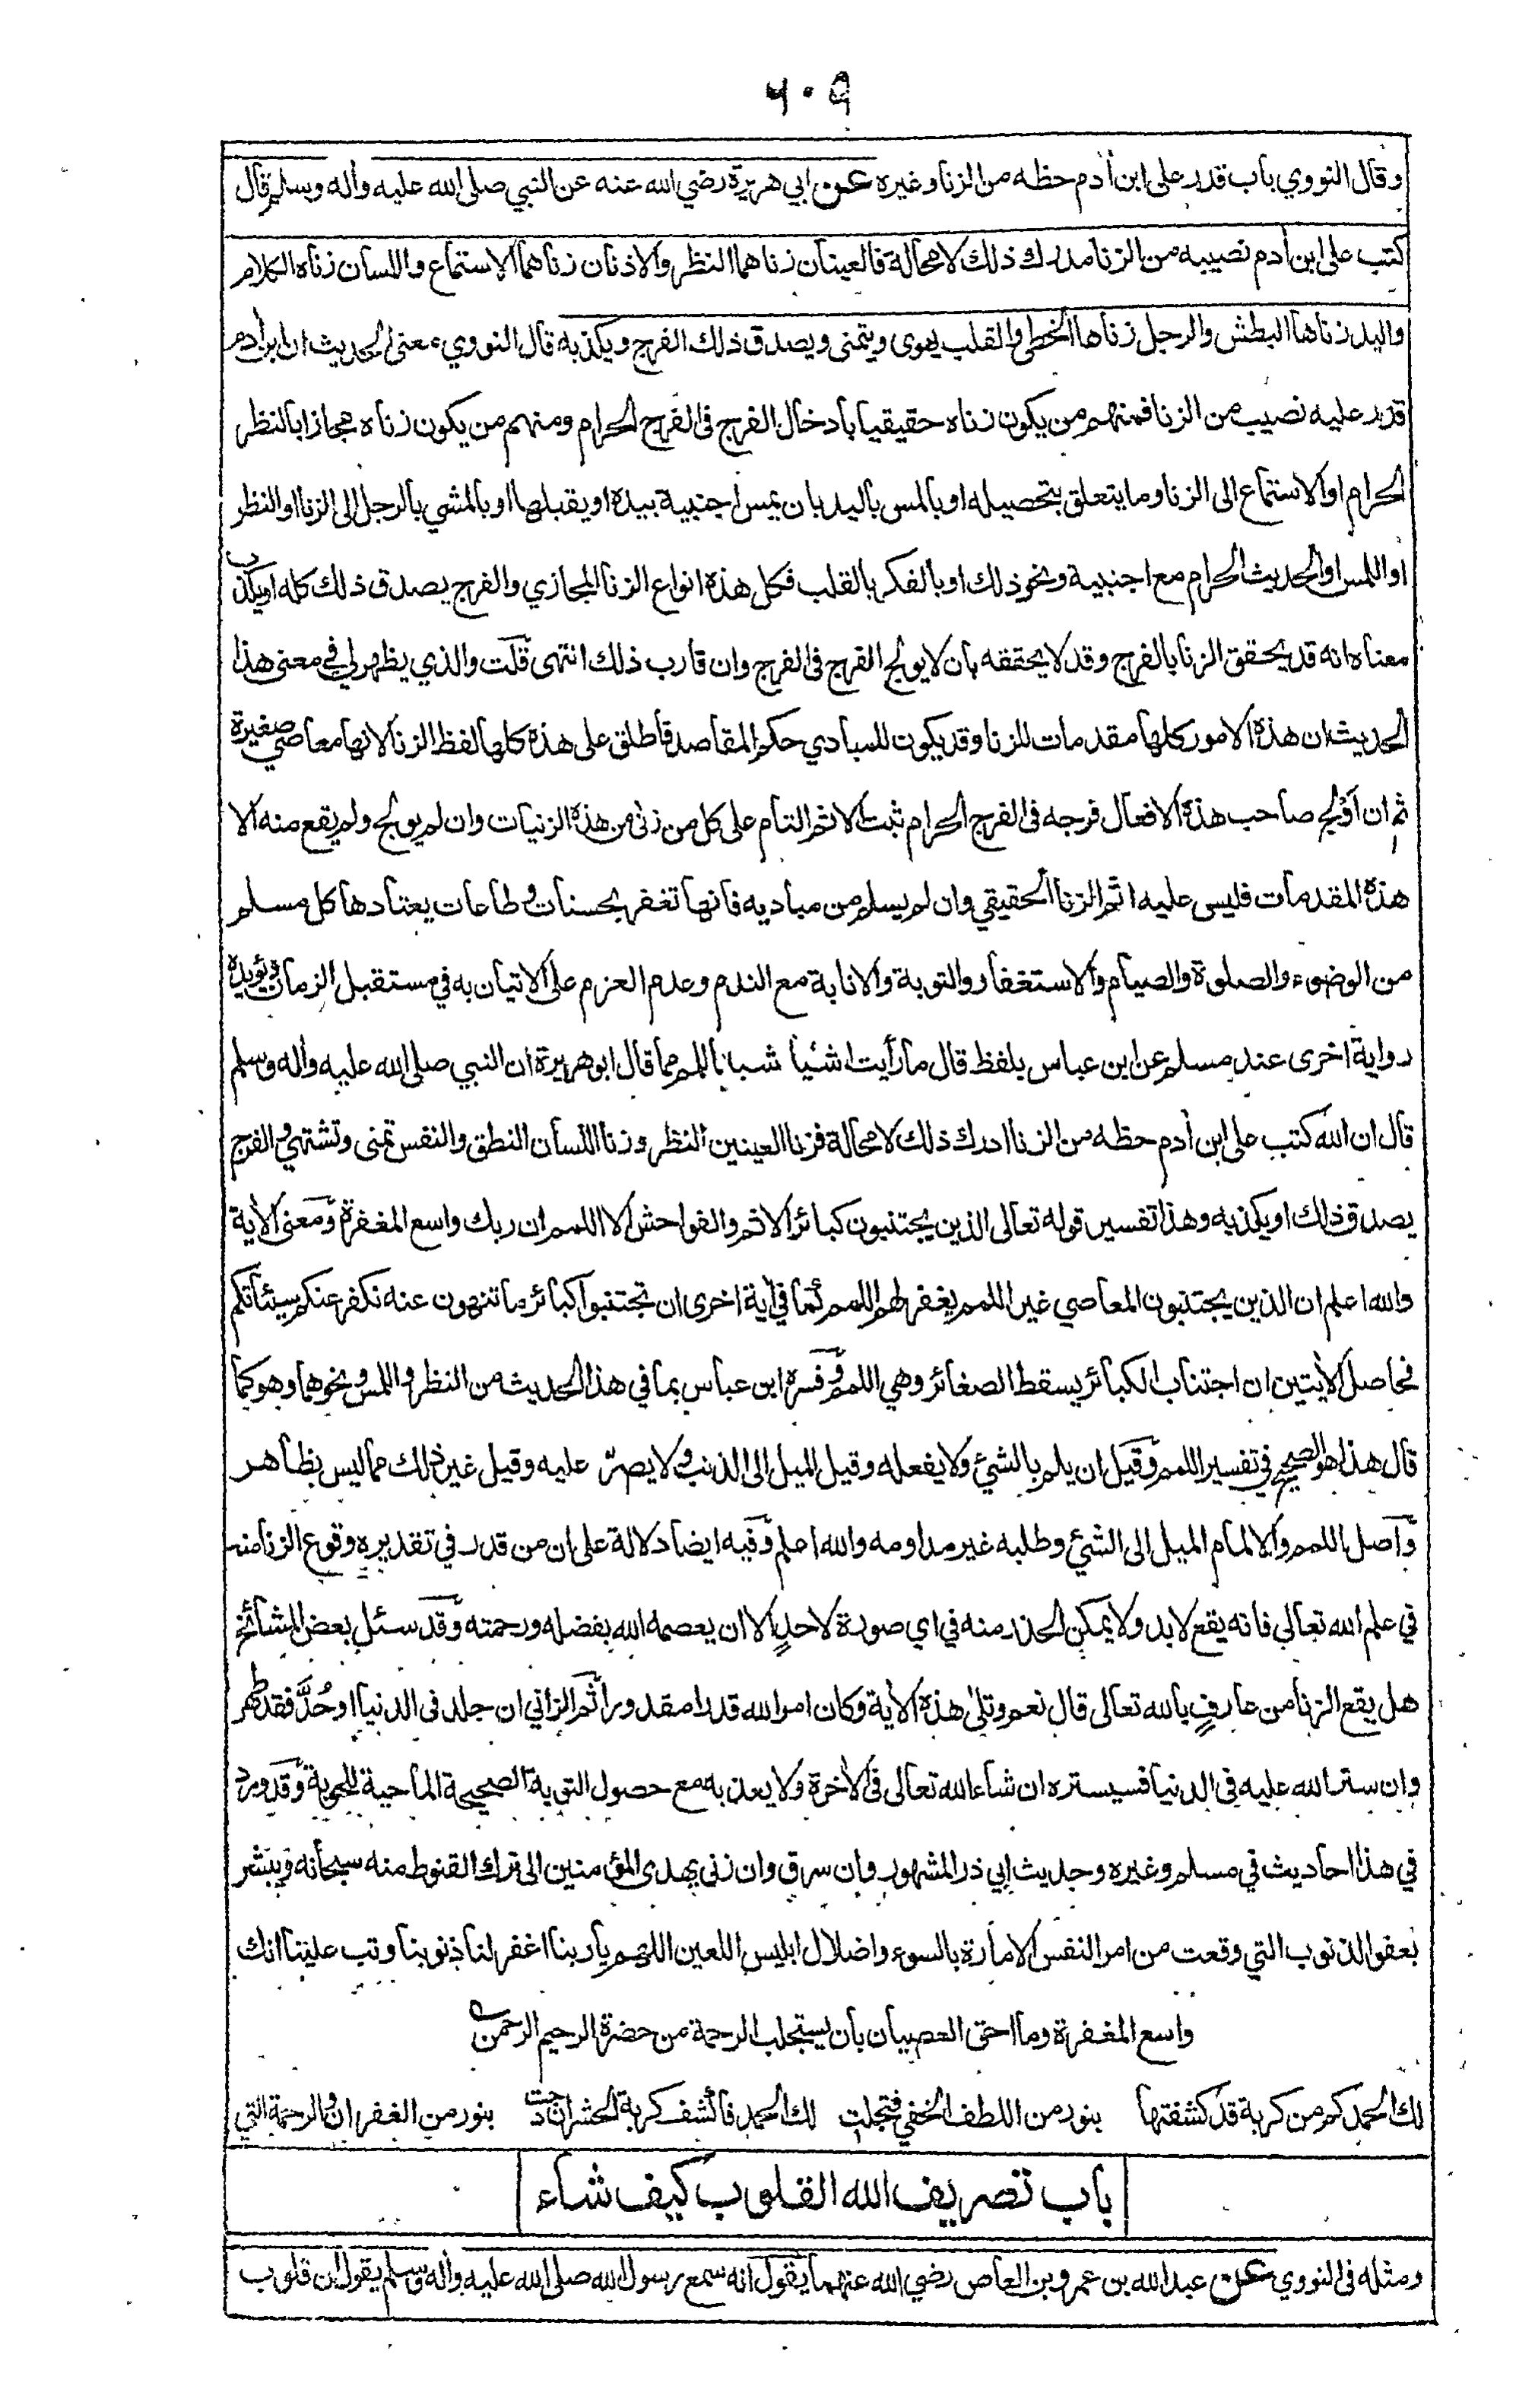 ٦٠٩
وقال النووي باب قدر على ابن أدم حظه من الزنا وغيره عن ابي هريرة رضي الله عنه عن النبي صلى الله عليه وأله وسلم قال
كتب على ابن أدم نصيبه من الزنا مدرك ذلك لا محالة فالعينان زناهما النظر والاذنان زناهما الاستماع واللسان زناه الكلام
واليد زناها البطش والرجل زناها الخطى والقلب يهوى ويتمنى ويصدق ذلك الفرج ويكذبه قال النووي معنى الحديث ان ابن أدم
قدر عليه نصيب من الزنا فمنهم من يكون زناه حقيقيا بادخال الفرج فى الفرج الحرام ومنهم من يكون زناه مجازا بالنظر
الحرام او الاستماع الى الزنا وما يتعلق بتحصيله او بالمس باليد بان يمس اجنبية بيده او يقبلها او بالمشي بالرجل الى الزنا او النظر
او اللمس او الحديث الحرام مع اجنبية ونحو ذلك او بالفكر بالقلب فكل هذه انواع الزنا المجازي والفرج يصدق ذلك كله او يكذب
معناه انه قد يحقق الزنا بالفرج وقد لا يحققه بان لا يولج الفرج فى الفرج وان قارب ذلك انتهى قلت والذي يظهر لي في معنى هذا
الحديث ان هذه الامور كلها مقدمات للزنا وقد يكون للمبادي حكم المقاصد فاطلق على هذه كلها لفظ الزنا لانها معاصي صغيرة
ثم ان أولج صاحب هذه الافعال فرجه فى الفرج الحرام ثبت الاثم التام على كل من زنى من هذه الزنيات وان لم يولج ولم يقع منه الا
هذه المقدمات فليس عليه اثم الزنا الحقيقي وان لم يسلم من مباديه فانها تغفر بحسنات وطاعات يعتادها كل مسلم
من الوضوء والصلوة والصيام والاستغفار والتوبة والانابة مع الندم وعدم العزم على الاتيان به في مستقبل الزمان ويؤيده
رواية اخرى عند مسلم عن ابن عباس بلفظ قال ما رأيت اشئيا شبه باللمم مما قال ابو هريرة ان النبي صلى الله عليه وأله وسلم
قال ان الله كتب على ابن أدم حظه من الزنا ادرك ذلك لا محالة فزنا العينين النظر وزنا اللسان النطق والنفس تمنى وتشتهي والفرج
يصدق ذلك او يكذبه وهذا تفسير قوله تعالى الذين يجتنبون كبائر الاثم والفواحش الا اللمم ان ربك واسع المغفرة ومعنى الأية
والله اعلم ان الذين يجتنبون المعاصي غير اللمم يغفر لهم اللمم كما في أية اخرى ان تجتنبوا كبائر ما تنهون عنه نكفر عنكم سيئاتكم
فحاصل الأيتين ان اجتناب الكبائر يسقط الصغائر وهي اللمم وفسره ابن عباس بما في هذا الحديث من النظر واللمس ونحوهما وهو كما
قال هذا هو الصحيح في تفسير اللمم وقيل ان يلم بالشئ ولا يفعله وقيل الميل الى الذنب ولا يصرّ عليه وقيل غير ذلك مما ليس بظاهر
وأصل اللمم والالمام الميل الى الشئ وطلبه غير مداومه والله اعلم وفيه ايضا دلالة على ان من قدر في تقديره وقوع الزنا منه
في علم الله تعالى فانه يقع لا بد ولا يمكن الحذر منه في اي صورة لاحدٍ الا ان يعصمه الله بفضله ورحمته وقد سئل بعض المشائخ
هل يقع الزنا من عارفٍ بالله تعالى قال نعم وتلى هذه الأية وكان امر الله قدرا مقدورا ثم الزاني ان جلد فى الدنيا او حُدَّ فقد طهر
وان ستر الله عليه فى الدنيا فسيستره ان شاء الله تعالى فى الأخرة ولا يعذبه مع حصول التوبة الصحيحة الماحية للحوبة وقد ورد
في هذا احاديث في مسلم وغيره وحديث ابي ذر المشهور وان سرق وان زنى يهدى المؤمنين الى ترك القنوط منه سبحانه ويبشر
بعفو الذنوب التي وقعت من امر النفس الامارة بالسوء واضلال ابليس اللعين اللهم يا ربنا اغفر لنا ذنوبنا وتب علينا انك
واسع المغفرة وما احق العصيان بان يستجلب الرحمة من حضرة الرحيم الرحمن
لك الحمد كم من كربة قد كشفتها بنور من اللطف الخفي فتجلت لك الحمد فاكشف كربة الحشر ان دجت بنور من الغفران والرحمة التي
باب تصريف الله القلوب كيف شاء
ومثله فى النووي عن عبد الله بن عمرو بن العاص رضي الله عنهما يقول انه سمع رسول الله صلى الله عليه وأله وسلم يقول ان قلوب